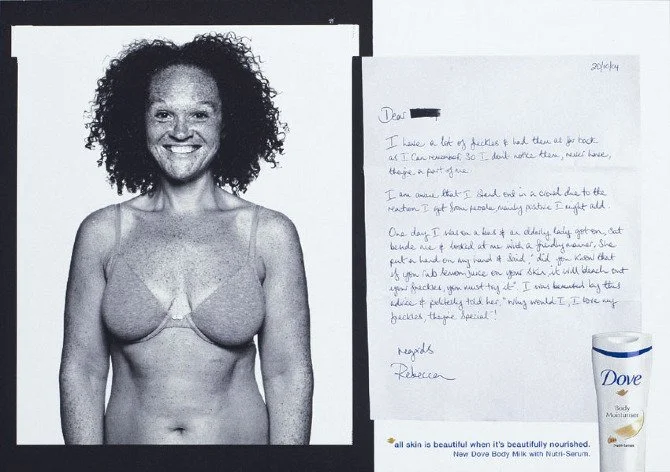 20/10/04
Dear
I have a lot of freckles & had them as far back
as I can remember. So I don't notice them, never have,
they're a part of me.
I am aware that I stand out in a crowd due to the
reaction I get from people mainly positive I might add.
One day I was on a bus & an elderly lady got on, sat
beside me & looked at me with a friendly manner. She
put a hand on my hand & said, "did you know that
if you rub lemon juice on your skin it will bleach out
your freckles, you must try it". I was by this
advice & politely told her, "Why would I, I love my
freckles, they're special"!
regards
Rebecca
Dove
Body
Moisturiser
all skin is beautiful when it's beautifully nourished.
New Dove Body Milk with Nutri-Serum.